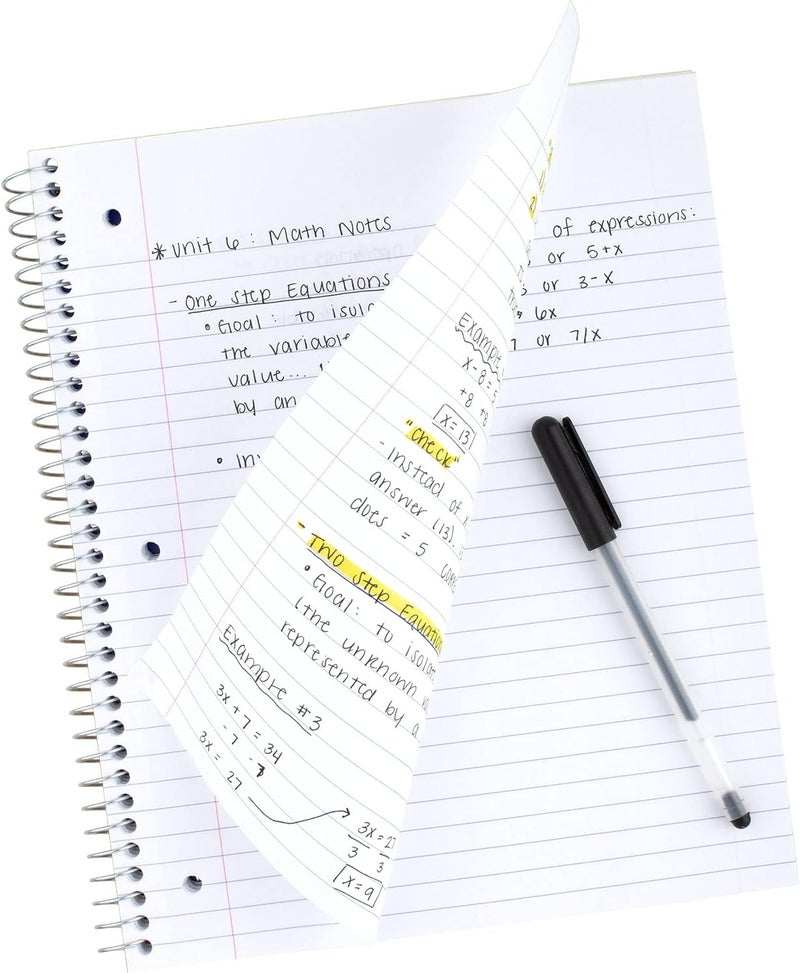 * Unit 6: Math Notes
- One Step Equations
• Goal: to isol
the variable
value...
by an
• In
of expressions:
or 5+x
or 3-x
6x
7 or 7/x
Example
x-8=5
+8 +8
x=13
"check"
- instead of
answer (13).
does = 5
- Two Step Equation
• Goal: to isolat
(the unknown
represented by a
Example #3
3x+7=34
-7 -7
3x = 27
3x=27
3 3
x=9